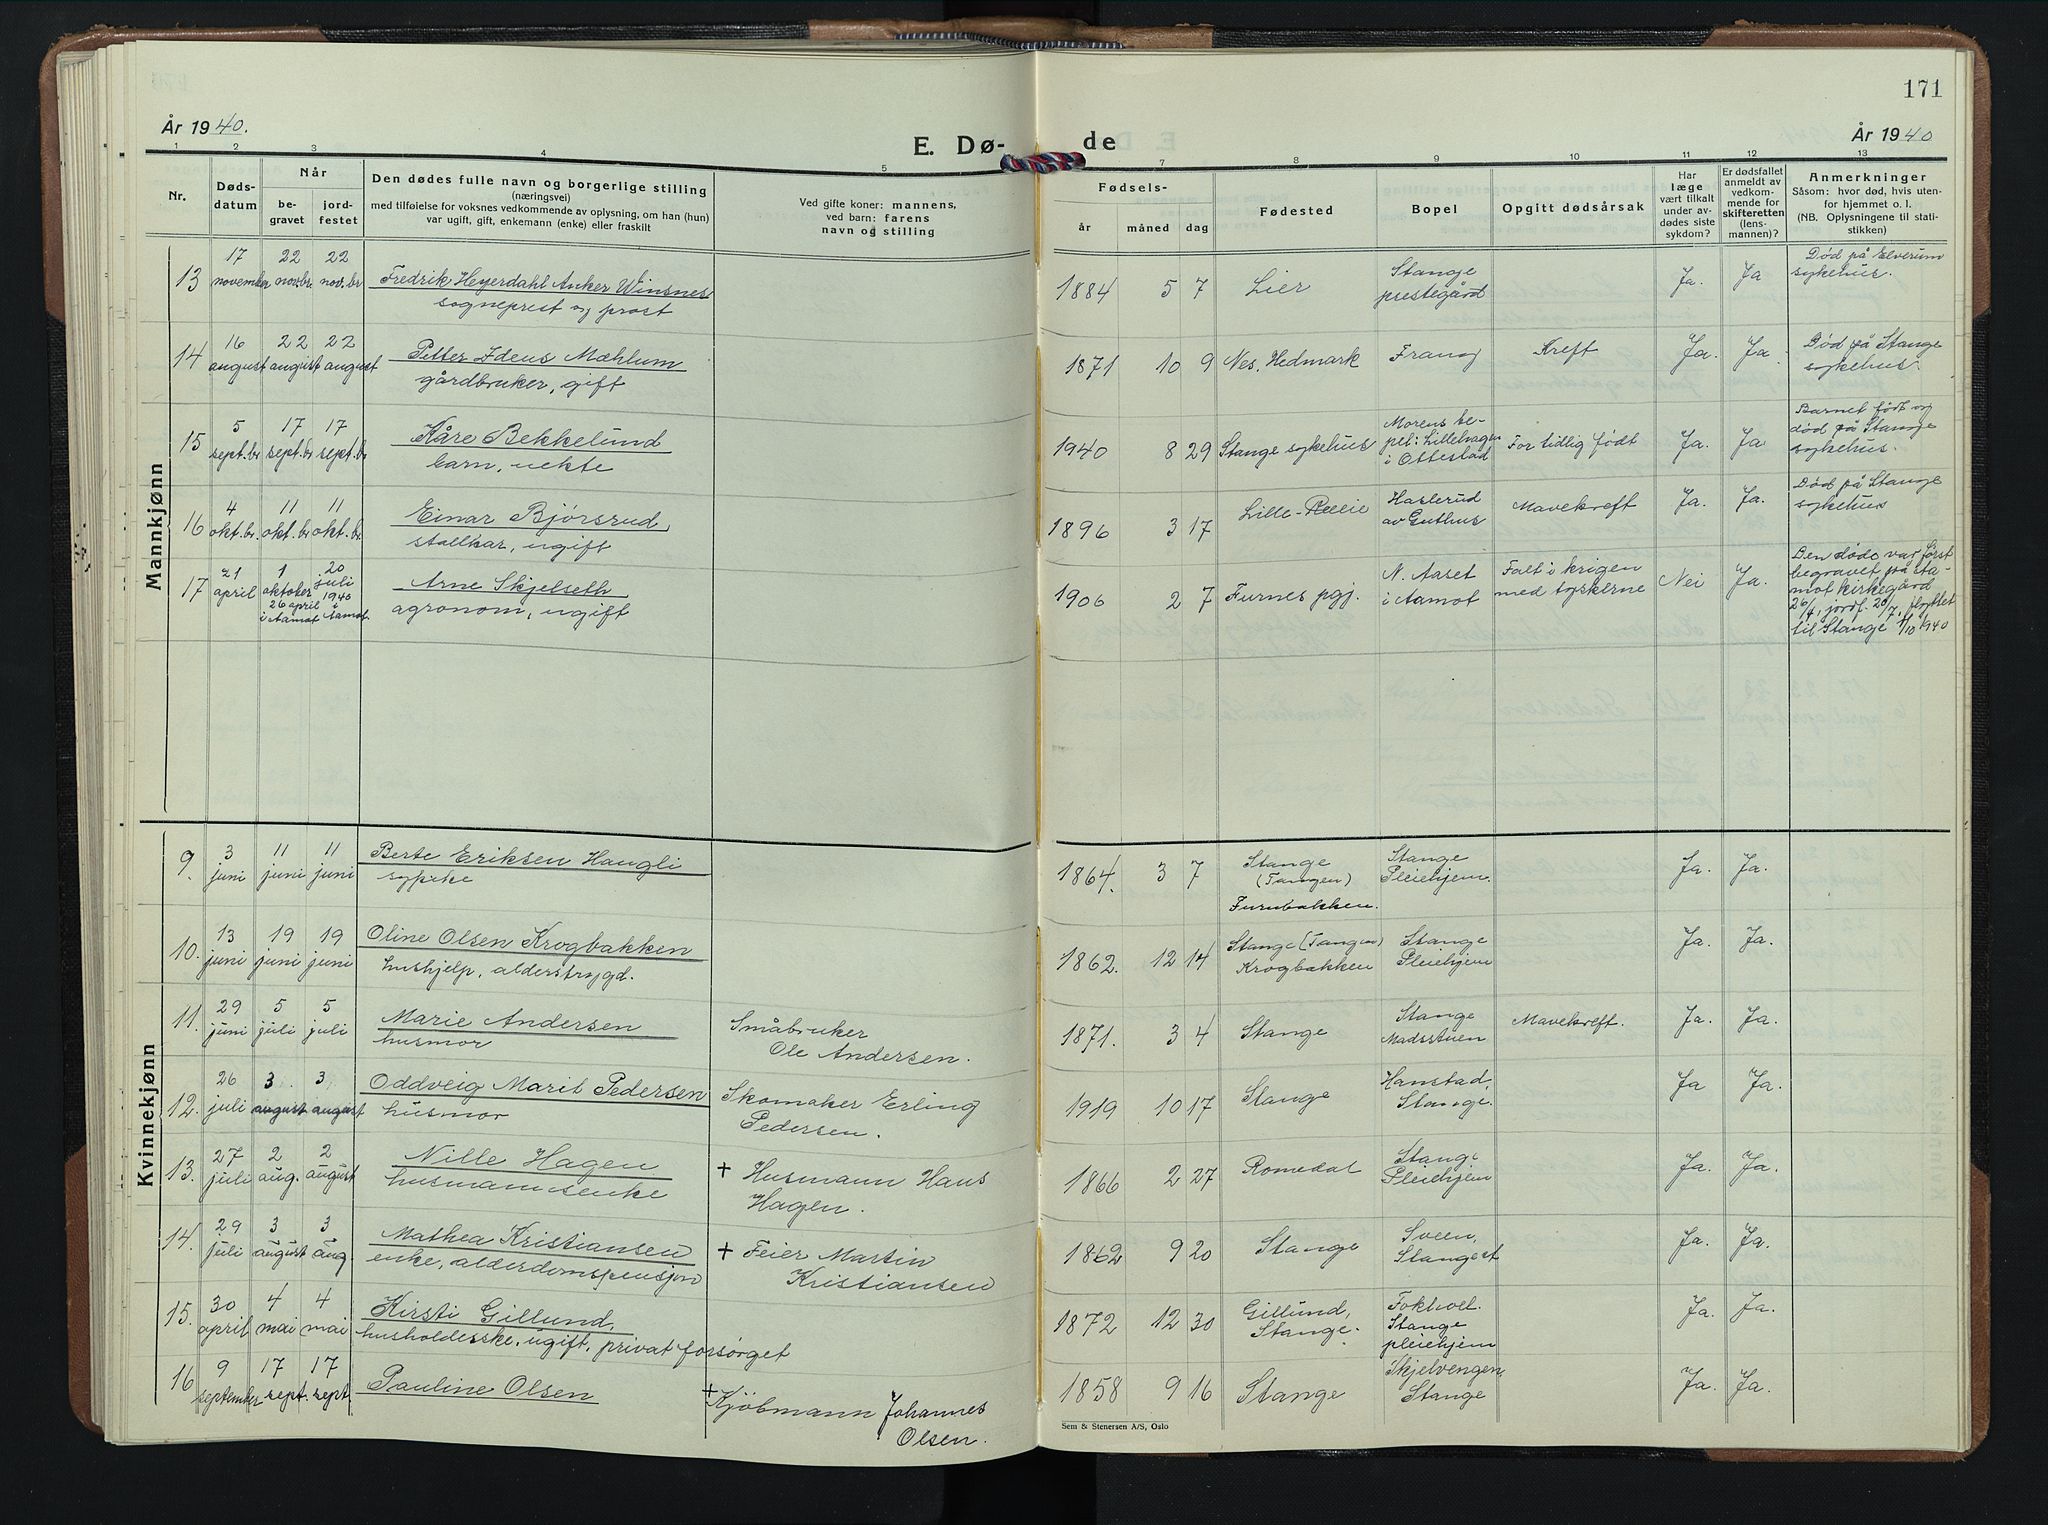 171
År 1940.
E. Dø-
de
År 1940
1 2 3 4 5 7 8 9 10 11 12 13
Nr.
Døds-
datum
Når
be-
gravet
jord-
festet
Den dødes fulle navn og borgerlige stilling
(næringsvei)
med tilføielse for voksnes vedkommende av oplysning, om han (hun)
var ugift, gift, enkemann (enke) eller fraskilt
Ved gifte koner: mannens,
ved barn: farens
navn og stilling
Fødsels-
år måned dag
Fødested
Bopel
Opgitt dødsårsak
Har
læge
vært tilkalt
under av-
dødes siste
sykdom?
Er dødsfallet
anmeldt av
vedkom-
mende for
skifteretten
(lens-
mannen)?
Anmerkninger
Såsom: hvor død, hvis uten-
for hjemmet o. l.
(NB. Oplysningene til stati-
stikken)
Mannkjønn
13
17
november
22
nov.br
22
nov.br
Fredrik Heyerdahl Anker Winsnes
sogneprest og prost
1884 5 7
Lier
Stange
prestegård
Ja.
Ja
Død på Elverum
sykehus.
14
16
august
22
august
22
august
Petter Ideus Mæhlum
gårdbruker, gift
1871 10 9
Nes, Hedmark
Frang
Kreft
Ja.
Ja.
Død på Stange
sykehus.
15
5
sept.br
17
sept.br
17
sept.br
Kåre Bekkelund
barn, uekte
1940 8 29
Stange sykehus
Morens bo-
pel: Lillehagen
i Ottestad
For tidlig født
Ja.
Ja
Barnet født og
død på Stange
sykehus.
16
4
okt.br.
11
okt.br
11
okt.br
Einar Bjørsrud
stallkar, ugift
1896 3 17
Haslerud
av Guthus
Mavekreft
Ja.
Ja.
Død på Stange
sykehus
17
21
april
1
oktober
26 april
i Aamot
20
juli
1940
i Aamot.
Arne Skjelseth
agronom, ugift
1906 2 7
Furnes pgj.
N. Aaset
i Aamot
Falt i krigen
med tyskerne
Nei
Ja.
Den døde var først
begravet på Aa-
mot kirkegård
26/4, jordf. 20/7, flyttet
til Stange 1/10 1940
Kvinnekjønn
9.
3
juni
11
juni
11
juni
Berte Eriksen Haugli
sypike
1864. 3 7
Stange
(Tangen)
Furubakken.
Stange
Pleiehjem.
Ja.
Ja.
10.
13
juni
19
juni
19
juni
Oline Olsen Krogbakken
hushjelp, alderstrygd.
1862. 12 14
Stange (Tangen)
Krogbakken
Stange
Pleiehjem
Ja.
Ja.
11.
29
juni
5
juli
5
juli
Marie Andersen
husmor
Småbruker
Ole Andersen.
1871. 3 4
Stange
Stange
Madsstuen
Mavekreft.
Ja.
Ja.
12.
26
juli
3.
august
3
august
Oddveig Marit Pedersen
husmor
Skomaker Erling
Pedersen.
1919 10 17
Stange
Hanstad,
Stange.
Ja
Ja.
13.
27
juli
2
aug.
2
august
Nille Hagen
husmannsenke
+ Husmann Hans
Hagen.
1866 2 27
Romedal
Stange
Pleiehjem
Ja.
Ja.
14.
29
juli
3
august
3
aug.
Mathea Kristiansen
enke, alderdomspensjon
+ Feier Martin
Kristiansen
1862 9 20
Stange
Sveen,
Stange st
Ja.
Ja.
15.
30
april
4
mai
4
mai
Kirsti Gillund,
husholderske, ugift, privat forsørget
1872 12 30
Gillund,
Stange.
Fokhol.
Stange
pleiehjem
Ja.
Ja.
16
9
september
17
sept.
17
sept.
Pauline Olsen
+ Kjöbmann Johannes
Olsen.
1858 9 16
Stange
Skjelvengen,
Stange
Ja.
Ja.
Sem & Stenersen A/S, Oslo